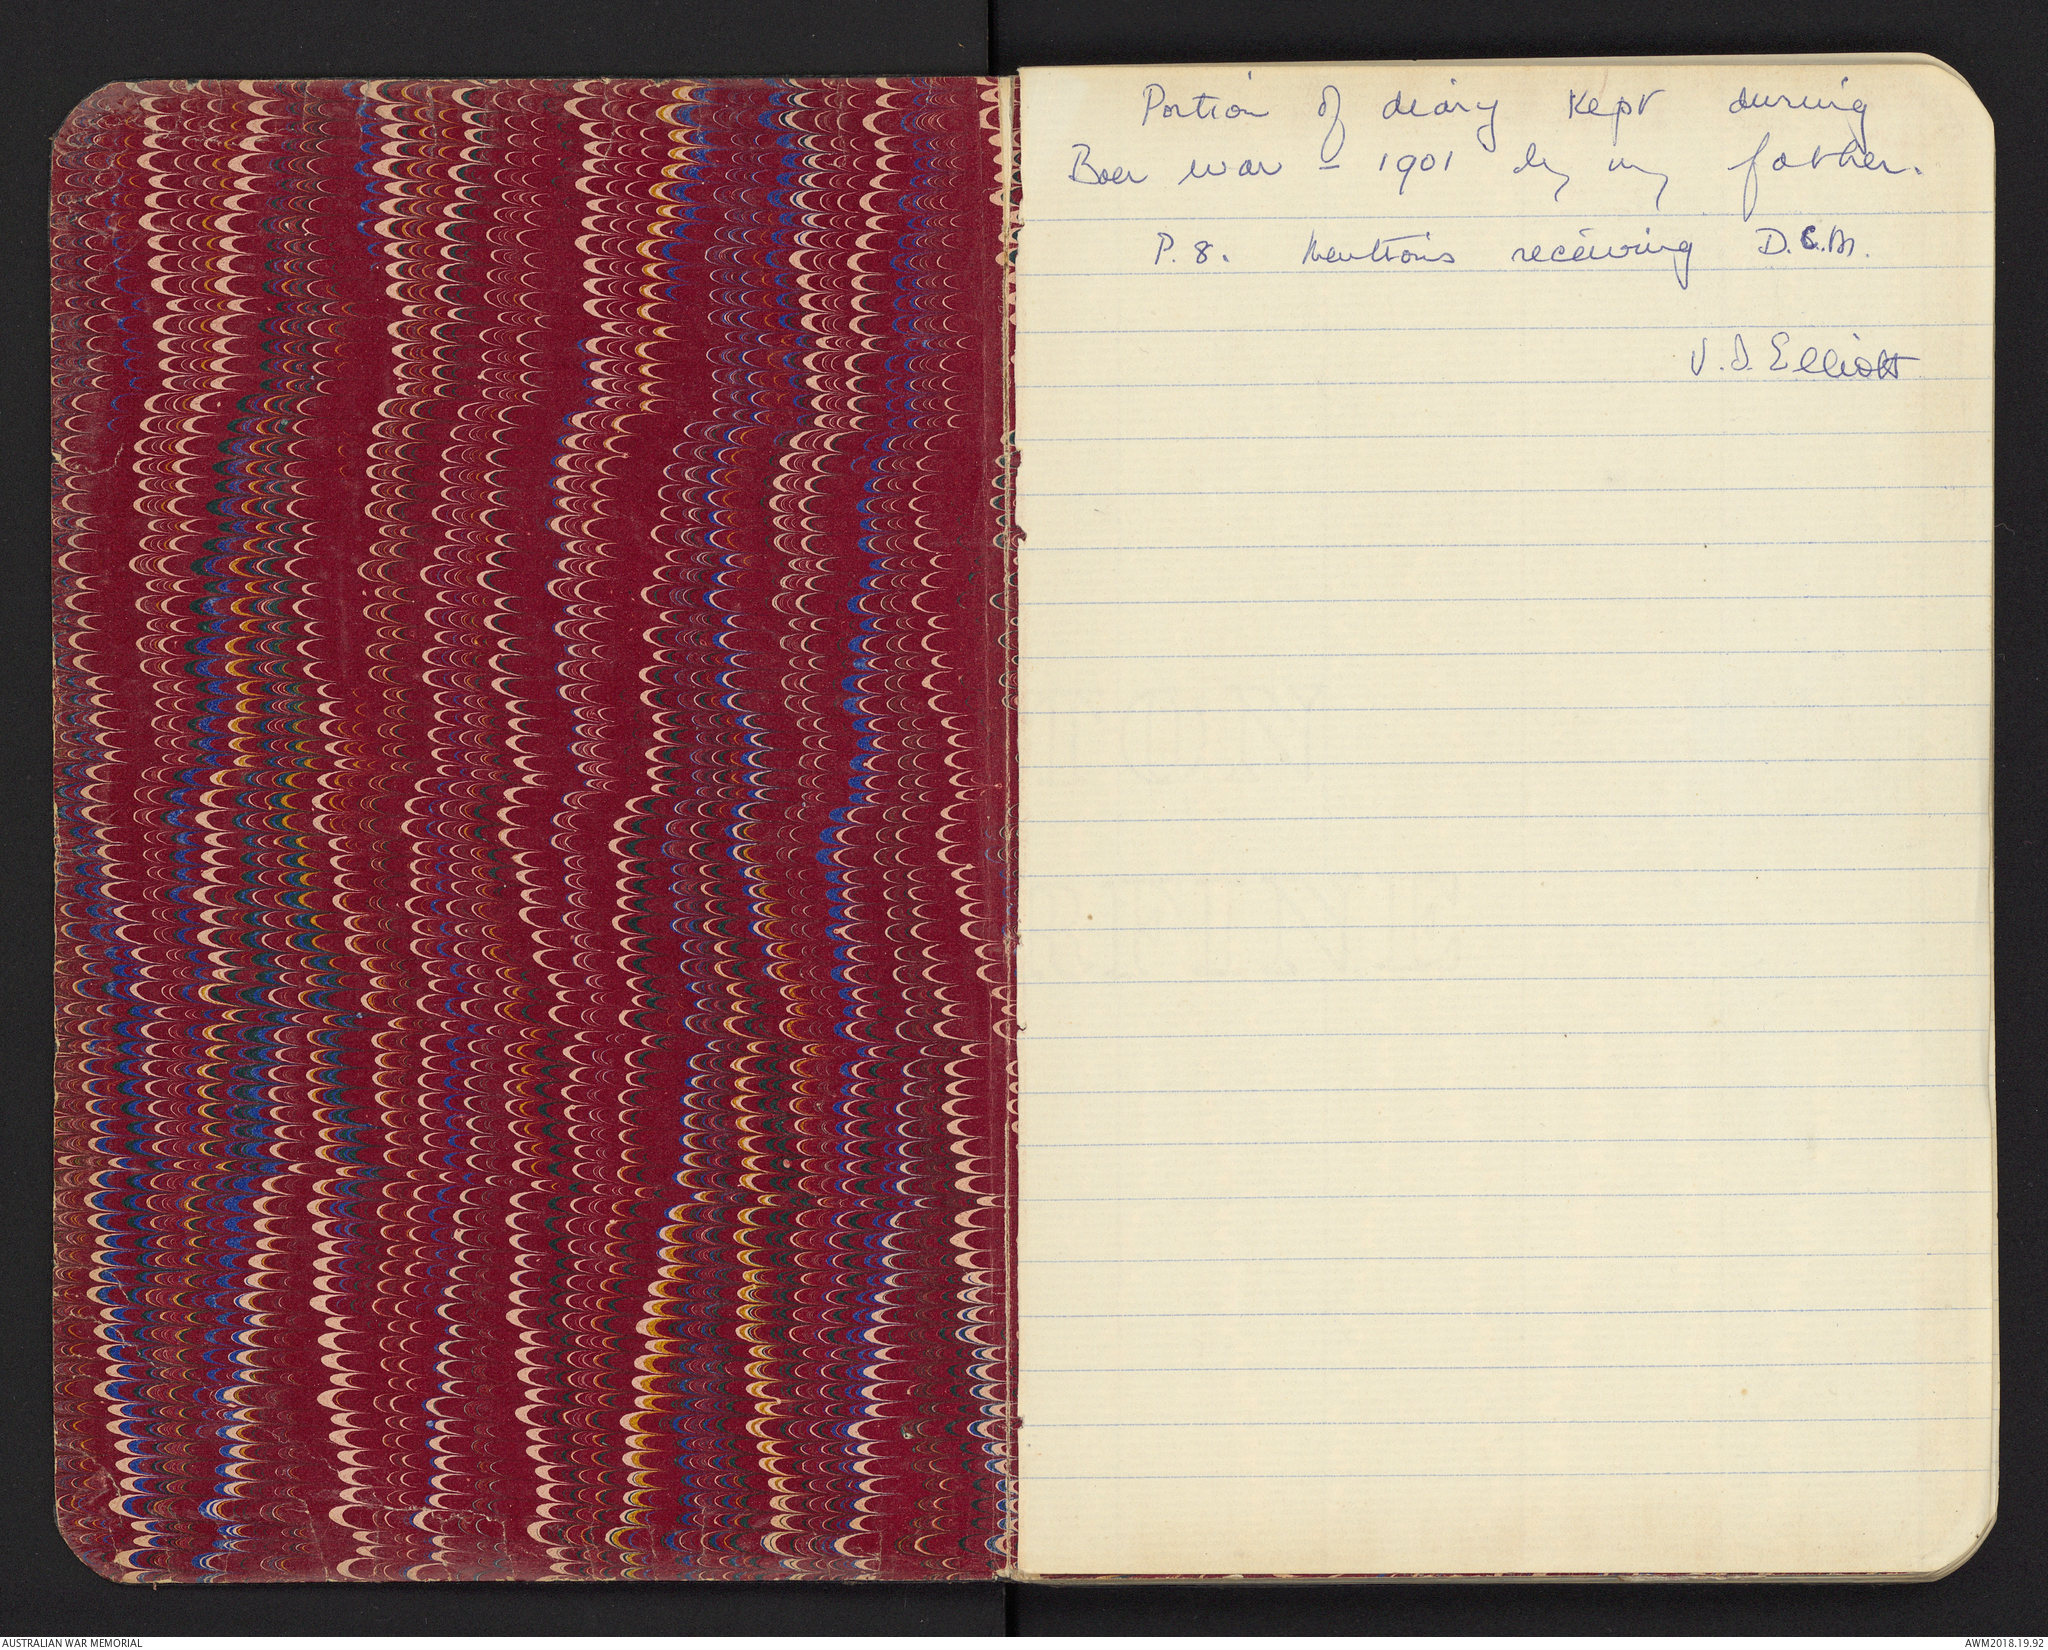 Portion of diary kept during
Boer war – 1901 by my father.
P. 8. Mentions receiving D.C.M.
V. D. Elliott
AUSTRALIAN WAR MEMORIAL
AWM2018.19.92